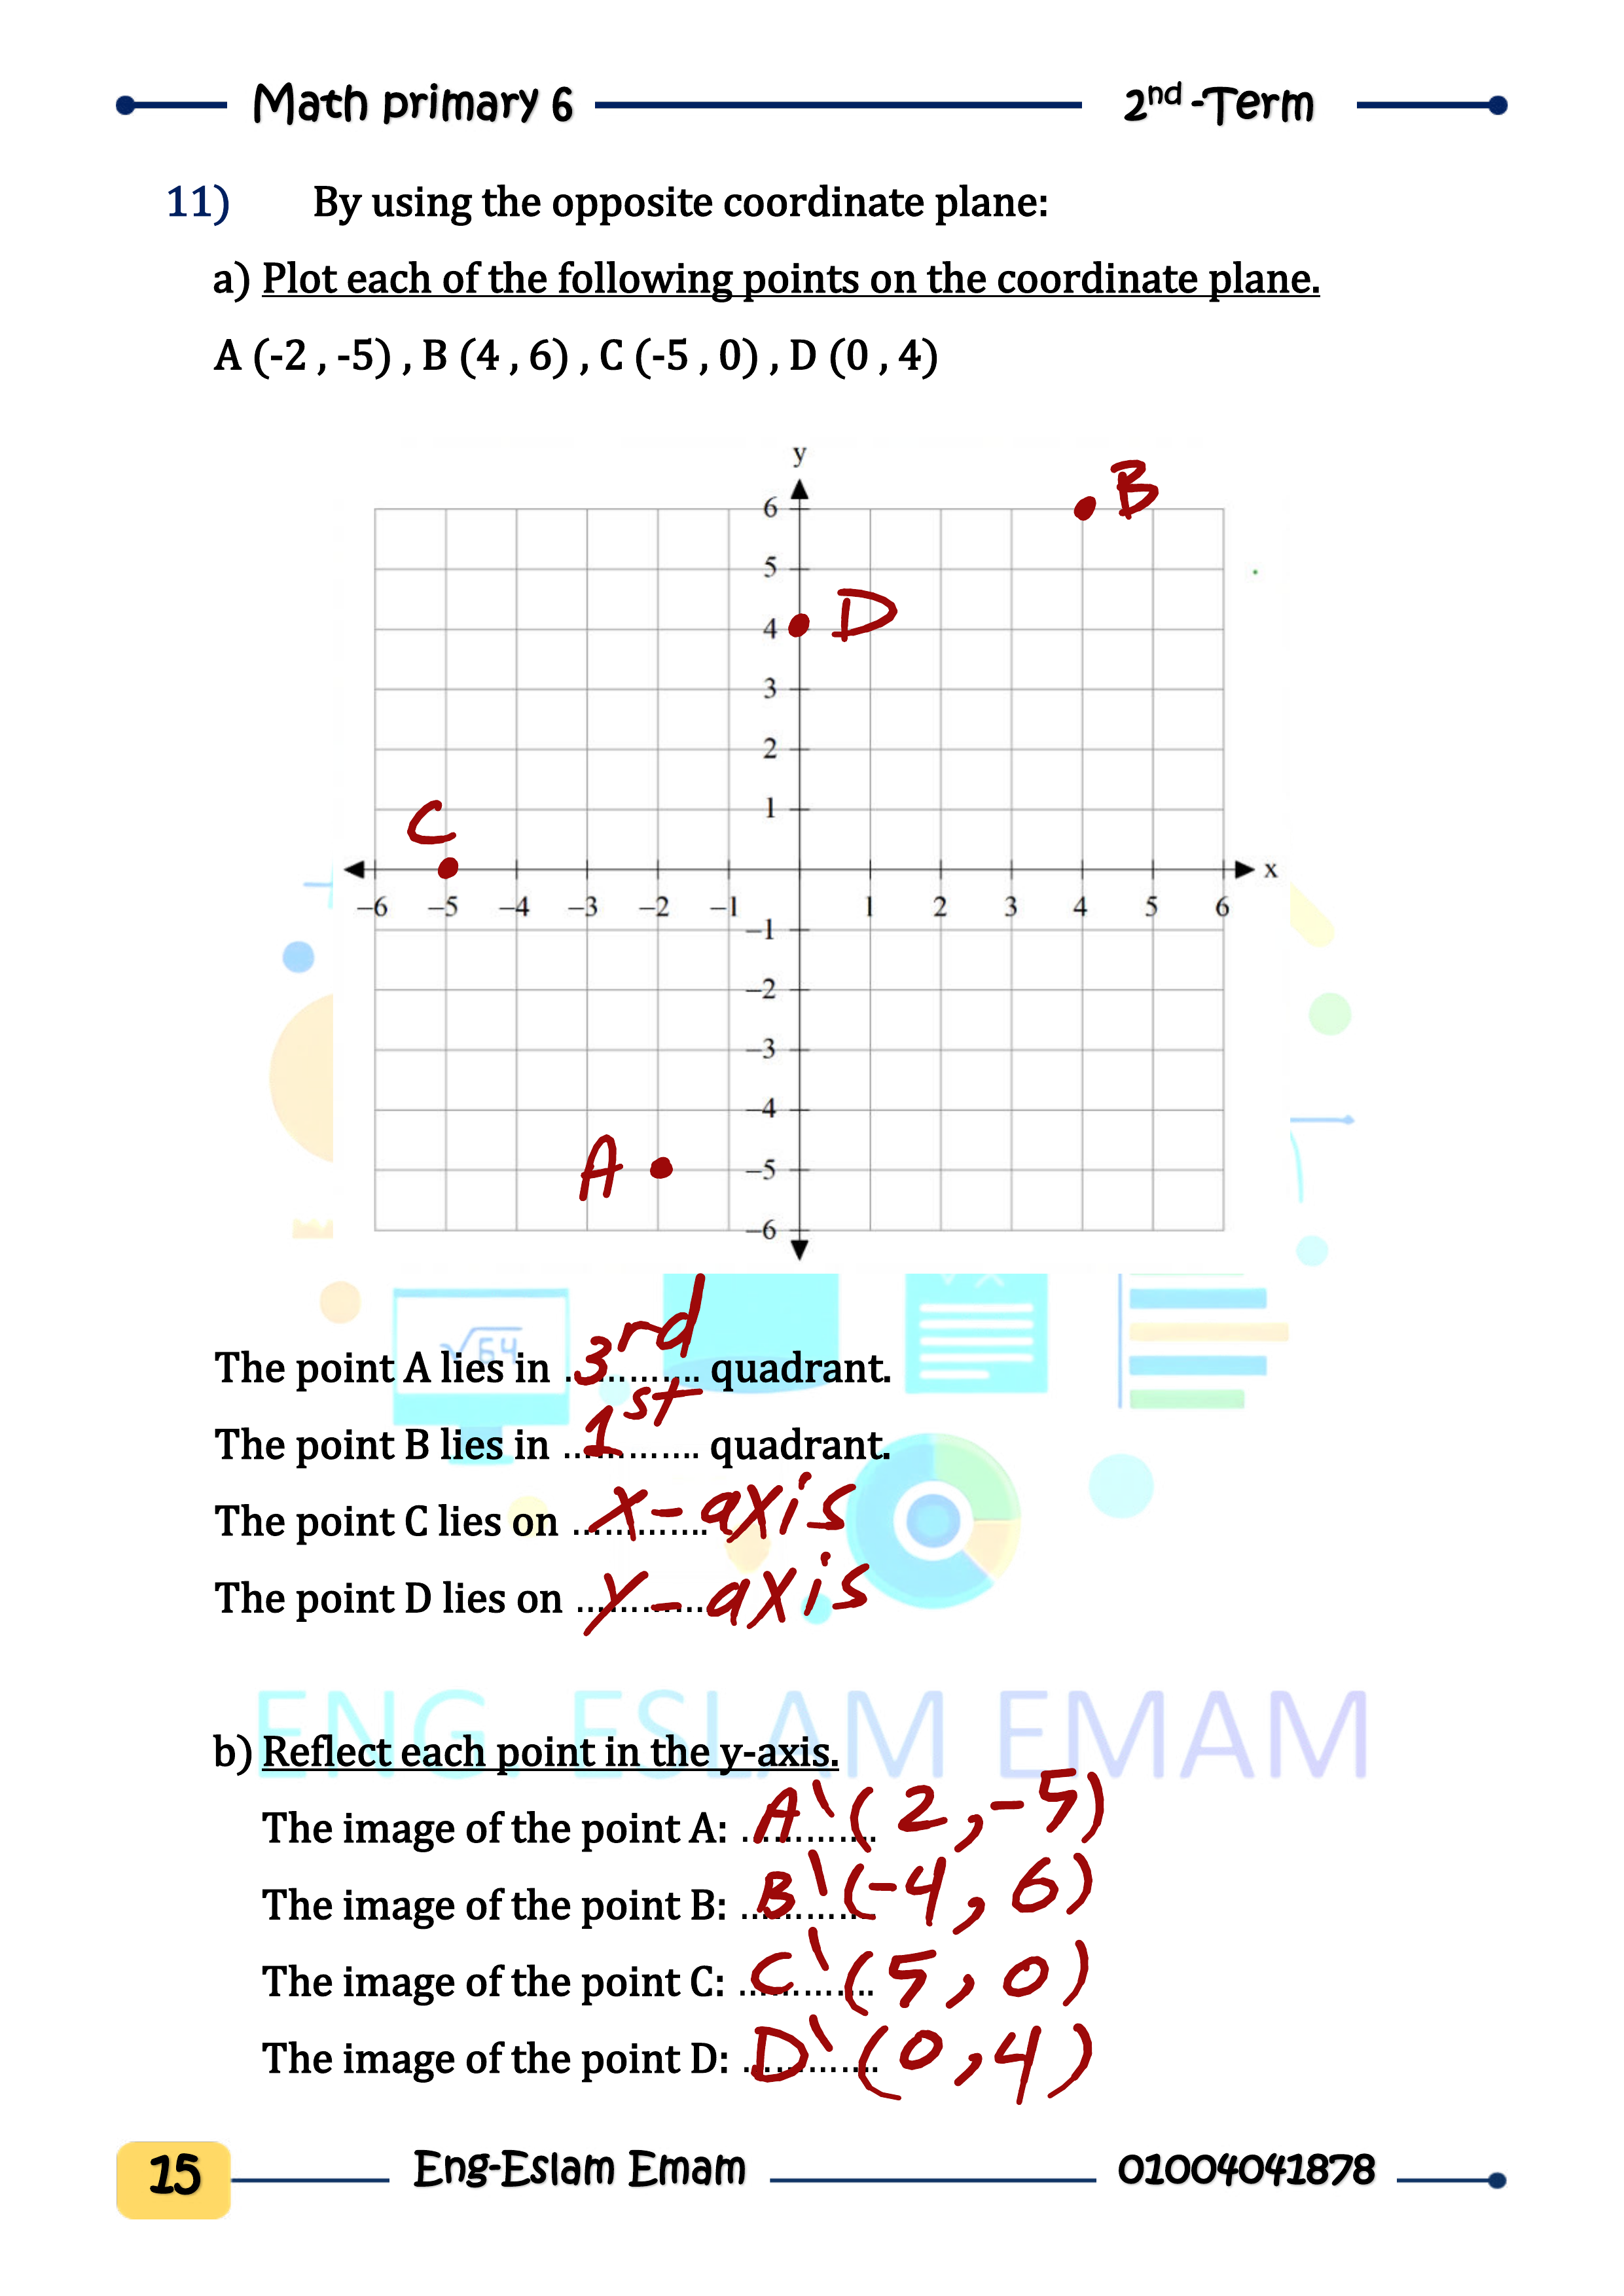 Math primary 6 2nd -Term
11) By using the opposite coordinate plane:
a) Plot each of the following points on the coordinate plane.
A (-2 , -5) , B (4 , 6) , C (-5 , 0) , D (0 , 4)
y
B
6
5
D
4
3
2
1
C
x
–6 –5 –4 –3 –2 –1 1 2 3 4 5 6
–1
–2
–3
–4
A
–5
–6
√64
The point A lies in 3rd quadrant.
The point B lies in 1st quadrant.
The point C lies on x-axis
The point D lies on y-axis
ENG ESLAM EMAM
b) Reflect each point in the y-axis.
The image of the point A: A'(2,-5)
The image of the point B: B'(-4,6)
The image of the point C: C'(5,0)
The image of the point D: D'(0,4)
15 Eng-Eslam Emam 01004041878